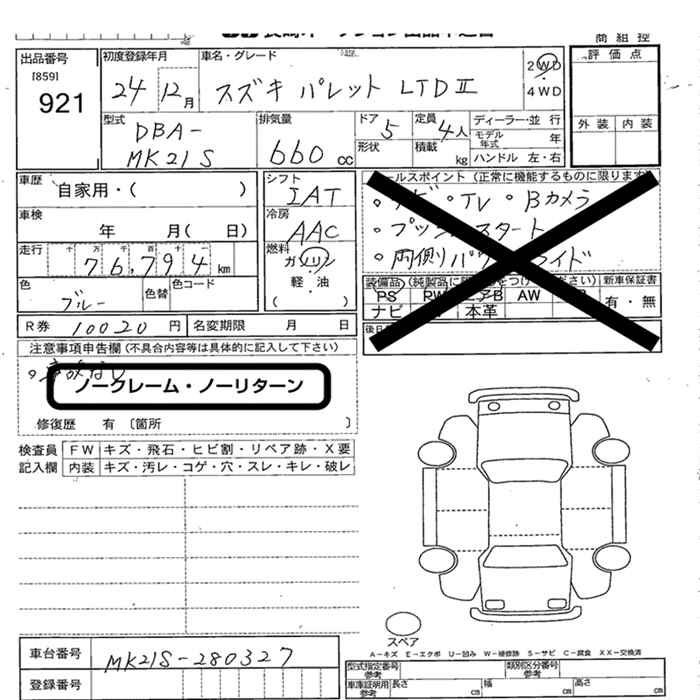 商 組 控
出品番号
[859]
921
初度登録年月
24年 12月
車名・グレード
スズキ パレット LTDⅡ
2WD
4WD
評 価 点
外 装 内 装
型式
DBA-
MK21S
排気量
660 cc
ドア
5
形状
定員
4人
積載
kg
ディーラー・並 行
モデル年式 年
ハンドル 左・右
車歴
自家用・( )
車検
年 月( 日)
走行
76,794 km
シフト
IAT
冷房
AAC
燃料
ガソリン
軽・油
( )
色
ブルー
色替
色コード
セールスポイント (正常に機能するものに限ります)
。ナビ 。TV 。Bカメラ
。プッシュスタート
。両側パワースライド
新車保証書
有・無
PS AW
ナビ 本革
R券 10020 円
名変期限 月 日
注意事項申告欄 (不具合内容等は具体的に記入して下さい)
ノークレーム・ノーリターン
修復歴 有 〔箇所 〕
検査員
記入欄
FW キズ・飛石・ヒビ割・リペア跡・X要
内装 キズ・汚レ・コゲ・穴・スレ・キレ・破レ
スペア
A-キズ E-エクボ U-凹み W-補修跡 S-サビ C-腐食 XX-交換済
車台番号
MK21S-280327
登録番号
型式指定番号 参考
類別区分番号 参考
車庫証明用 参考
長さ cm
幅 cm
高さ cm